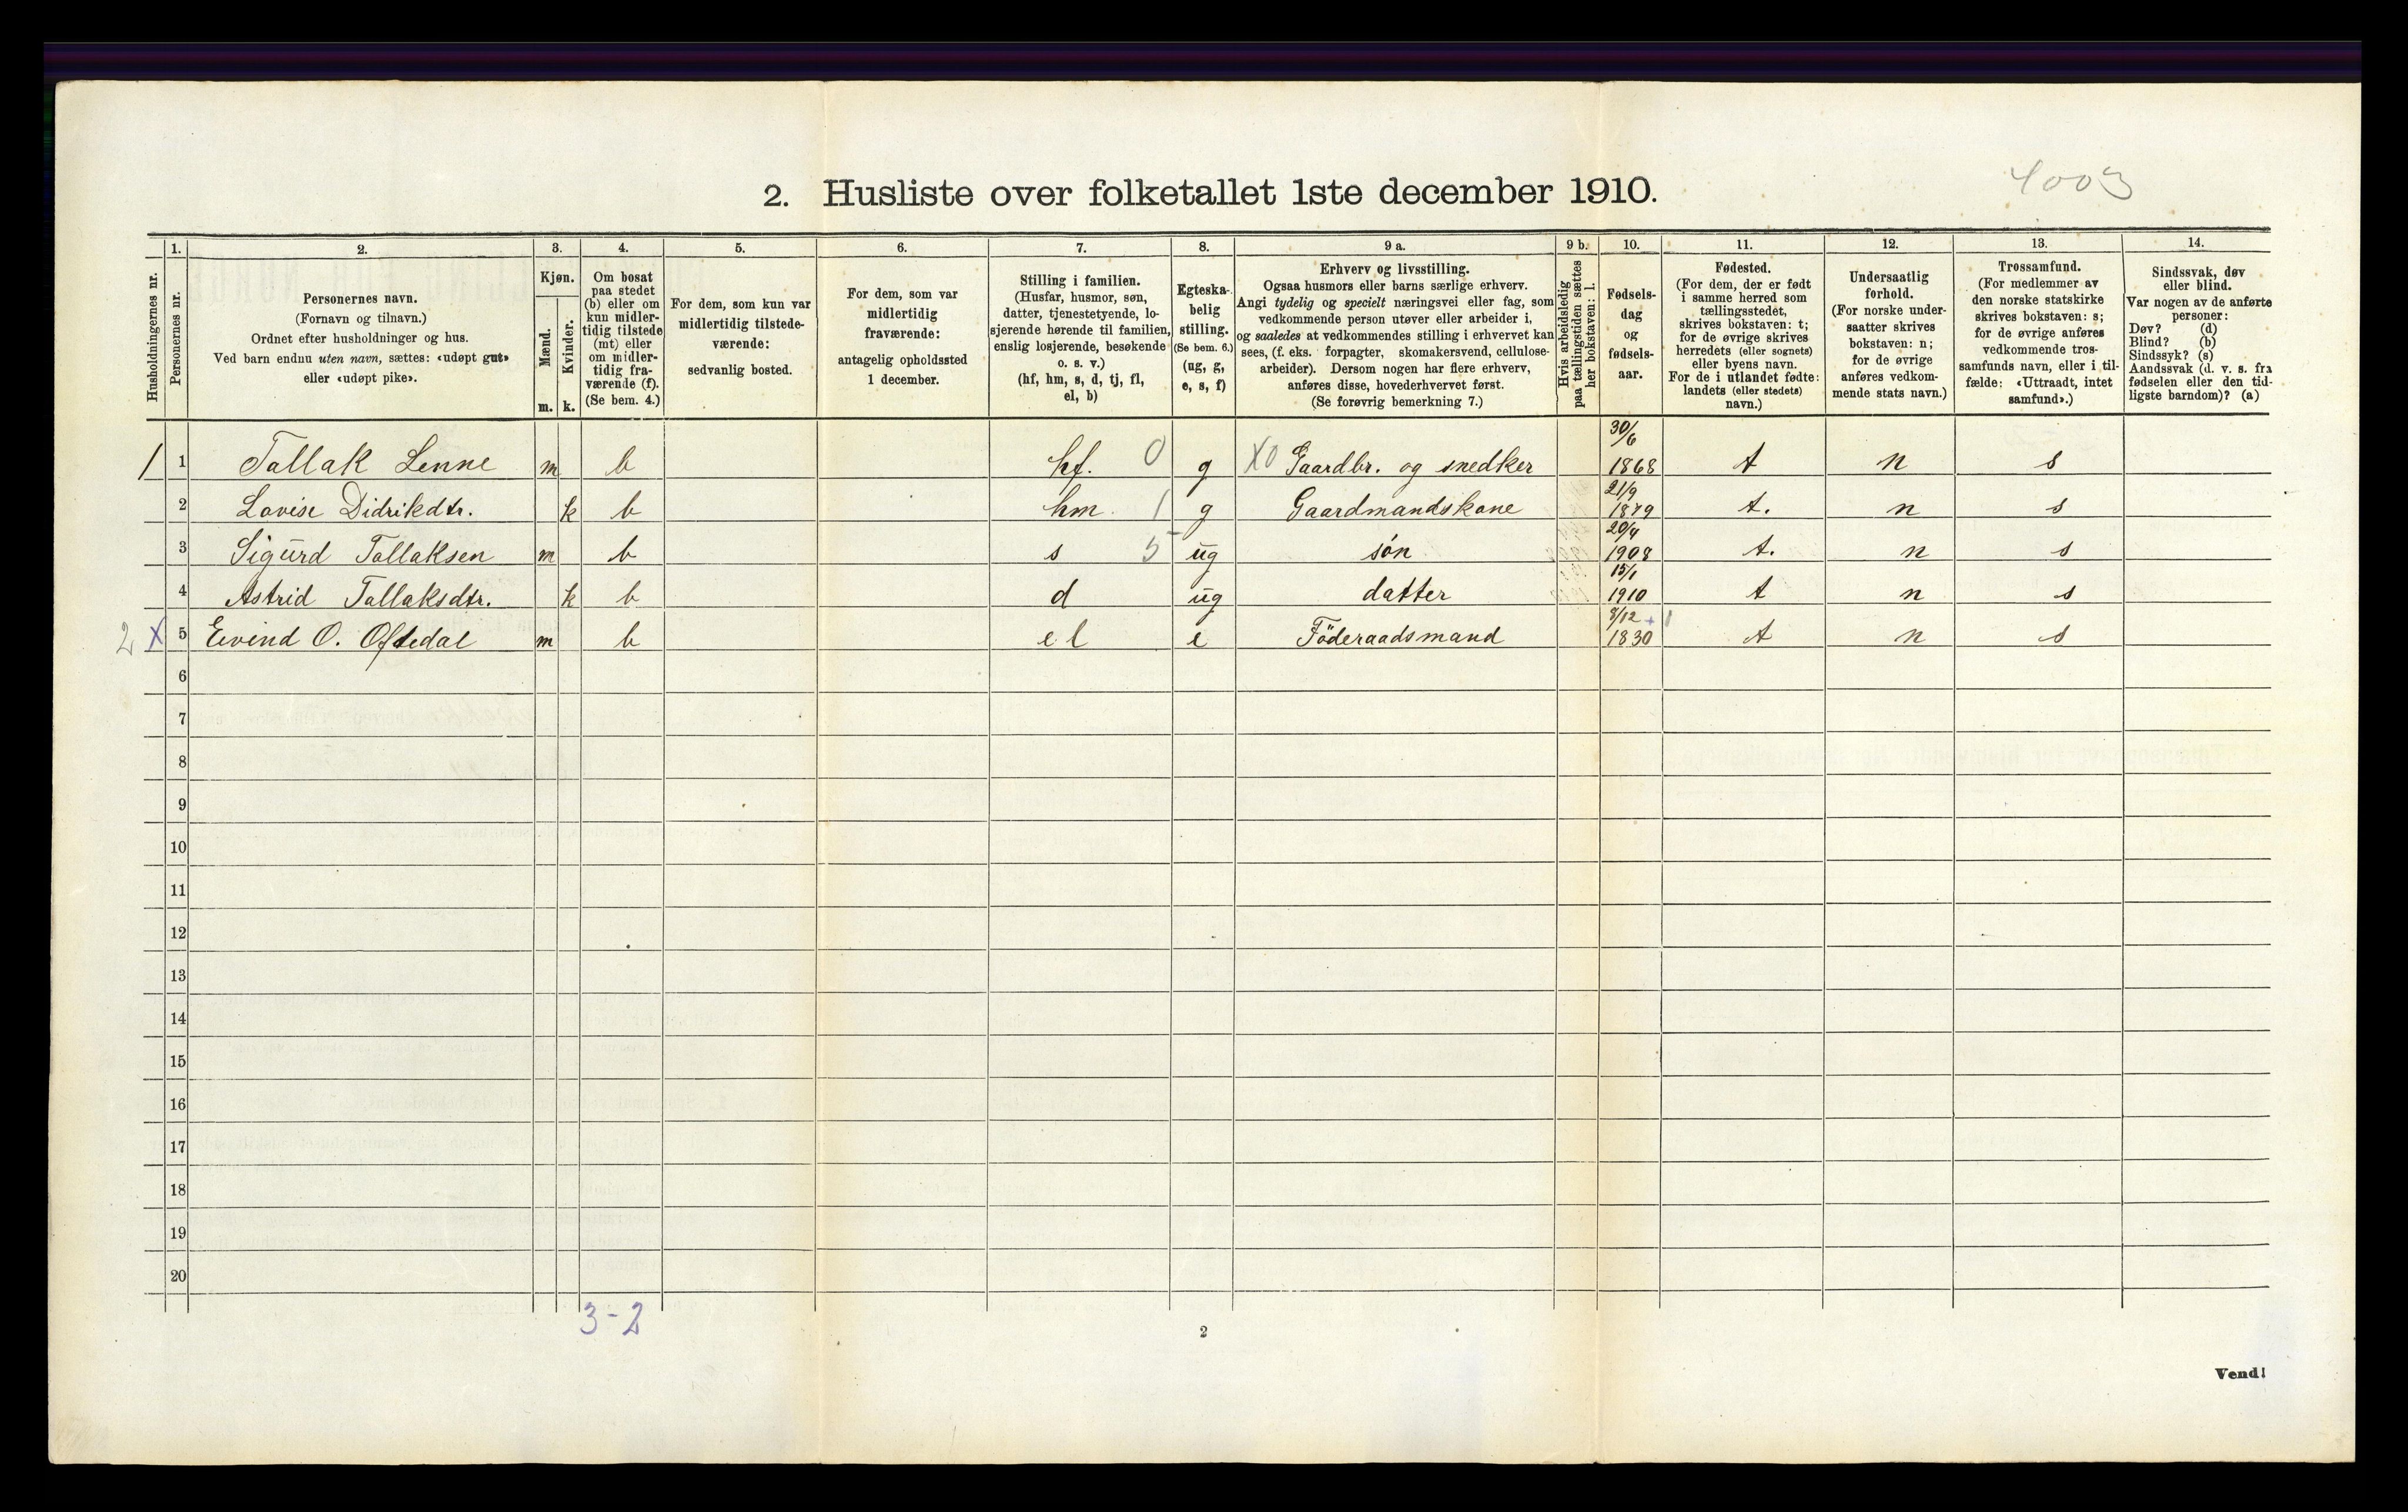 4003
2. Husliste over folketallet 1ste december 1910.
Husholdningernes nr.
1. Personernes nr.
2. Personernes navn. (Fornavn og tilnavn.) Ordnet efter husholdninger og hus. Ved barn endnu uten navn, sættes: «udøpt gut» eller «udøpt pike».
3. Kjøn. Mænd. m. Kvinder. k.
4. Om bosat paa stedet (b) eller om kun midlertidig tilstede (mt) eller om midlertidig fraværende (f). (Se bem. 4.)
5. For dem, som kun var midlertidig tilstedeværende: sedvanlig bosted.
6. For dem, som var midlertidig fraværende: antagelig opholdssted 1 december.
7. Stilling i familien. (Husfar, husmor, søn, datter, tjenestetyende, losjerende hørende til familien, enslig losjerende, besøkende o. s. v.) (hf, hm, s, d, tj, fl, el, b)
8. Egteskabelig stilling. (Se bem. 6.) (ug, g, e, s, f)
9 a. Erhverv og livsstilling. Ogsaa husmors eller barns særlige erhverv. Angi tydelig og specielt næringsvei eller fag, som vedkommende person utøver eller arbeider i, og saaledes at vedkommendes stilling i erhvervet kan sees, (f. eks. forpagter, skomakersvend, cellulosearbeider). Dersom nogen har flere erhverv, anføres disse, hovederhvervet først. (Se forøvrig bemerkning 7.)
9 b. Hvis arbeidsledig paa tællingstiden sættes her bokstaven: l.
10. Fødselsdag og fødselsaar.
11. Fødested. (For dem, der er født i samme herred som tællingsstedet, skrives bokstaven: t; for de øvrige skrives herredets (eller sognets) eller byens navn. For de i utlandet fødte: landets (eller stedets) navn.)
12. Undersaatlig forhold. (For norske undersaatter skrives bokstaven: n; for de øvrige anføres vedkommende stats navn.)
13. Trossamfund. (For medlemmer av den norske statskirke skrives bokstaven: s; for de øvrige anføres vedkommende trossamfunds navn, eller i tilfælde: «Uttraadt, intet samfund».)
14. Sindssvak, døv eller blind. Var nogen av de anførte personer: Døv? (d) Blind? (b) Sindssyk? (s) Aandssvak (d. v. s. fra fødselen eller den tidligste barndom)? (a)
1 1 Tallak Lenne m b hf. 0 g X0 Gaardbr. og snedker 30/6 1868 t n s
2 Lovise Didrikdtr. k b hm 1 g Gaardmandskone 21/9 1879 t. n s
3 Sigurd Tallaksen m b s 5 ug søn 20/4 1908 t. n s
4 Astrid Tallaksdtr. k b d ug datter 15/1 1910 t n s
2 X 5 Eivind O. Oftedal m b el e Föderaadsmand 8/12 1830 t n s
6
7
8
9
10
11
12
13
14
15
16
17
18
19
20
3-2
2
Vend!